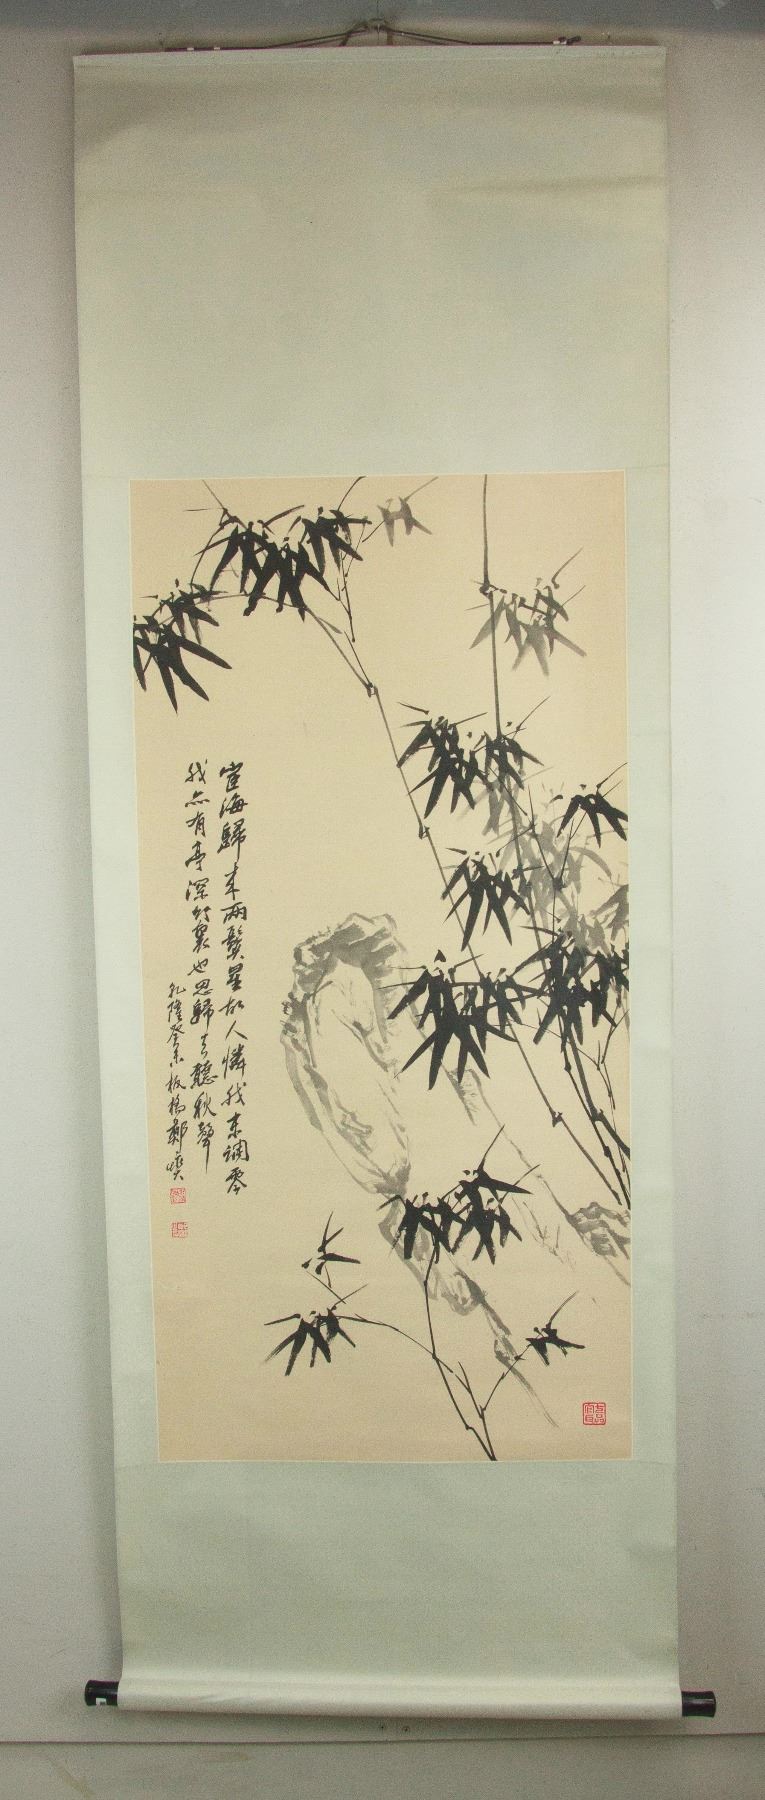 宦海歸來兩鬢星故人憐我未凋零
我亦有亭深竹裏也思歸去聽秋聲
乾隆癸未板橋鄭燮